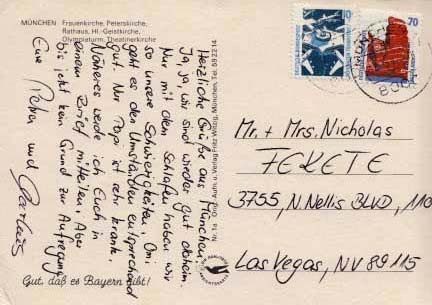 MÜNCHEN Frauenkirche, Peterskirche,
Rathaus, Hl.-Geistkirche,
Olympiaturm, Theatinerkirche
Herzliche Grüße aus München
Ja, ja, wir sind wieder gut daheim.
Nur mit dem Schlafen haben wir
so unsere Schwierigkeiten. Omi
geht es den Umständen entsprechend
gut. Nur Papi ist sehr krank.
Näheres werde ich Euch in
einem Brief mitteilen. Aber
bis jetzt kein Grund zur Aufregung
Eure Petra und
Gut, daß es Bayern gibt!
Nr. Aufn. u. Verlag Fritz Witzig, München, Tel.
70
70
Mr. + Mrs. Nicholas
FEKETE
3755, N. Nellis BLVD, 110
Las Vegas, NV 89115